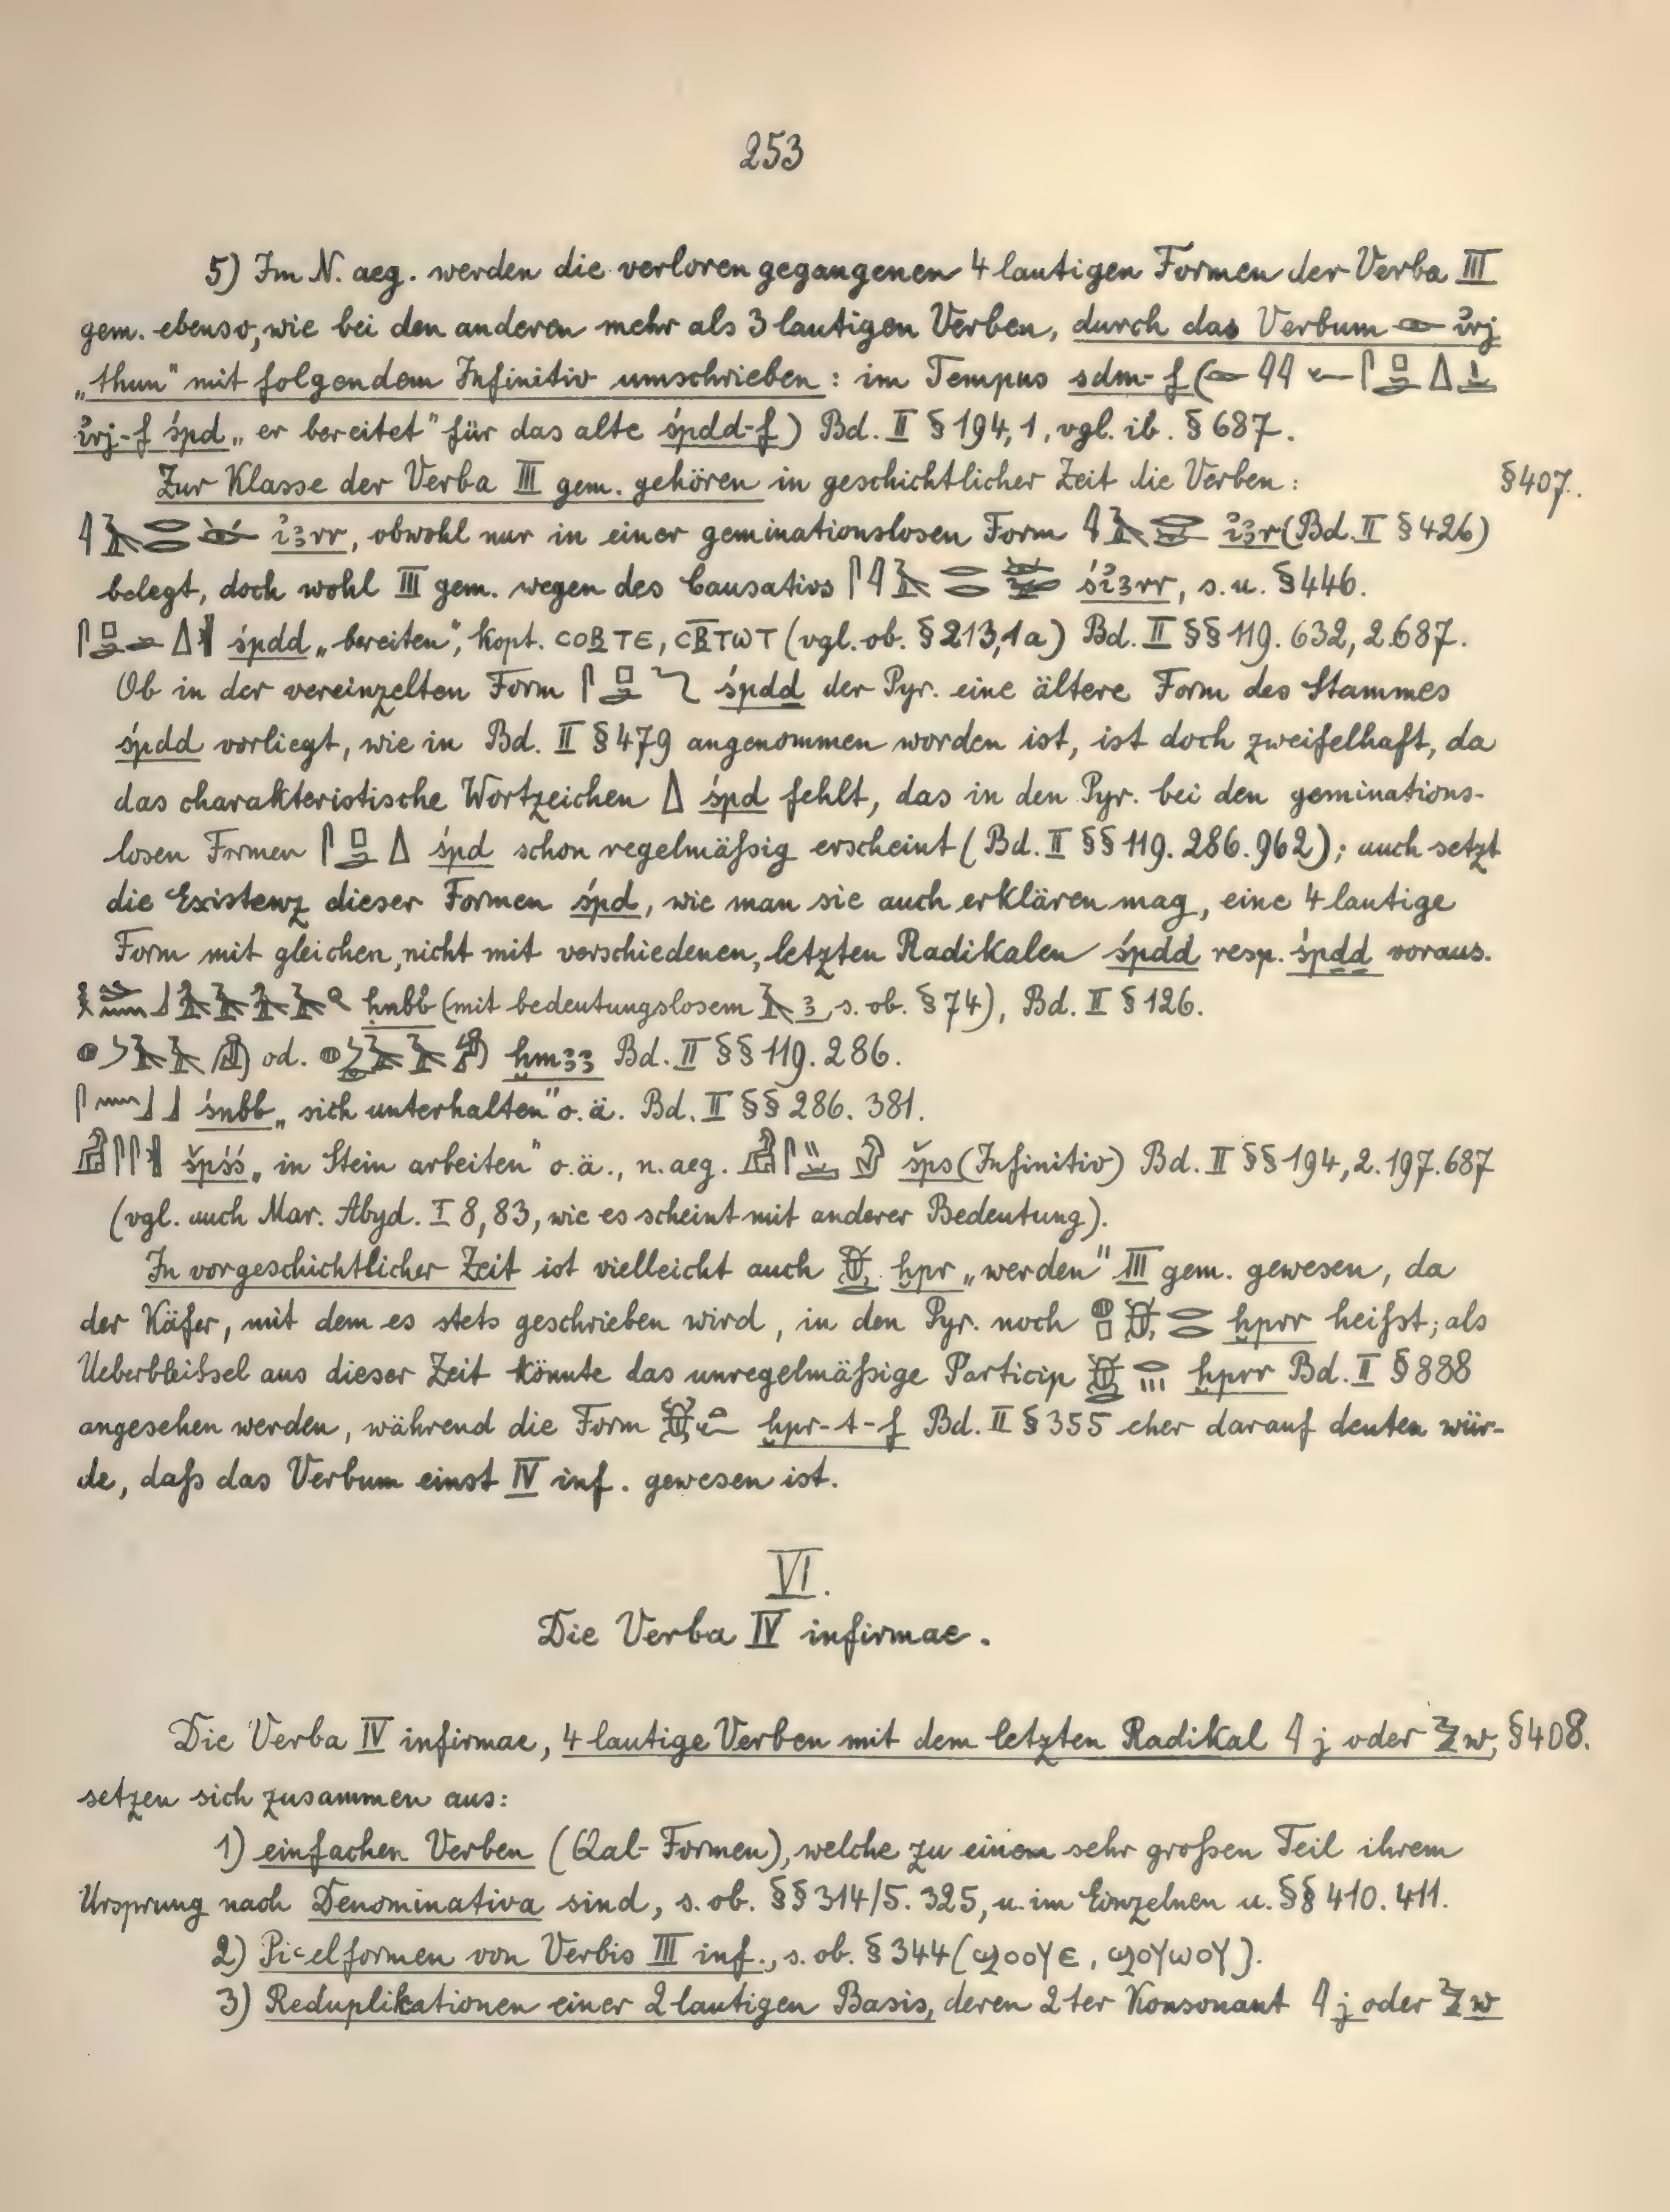 253
5) Im N. aeg. werden die verloren gegangenen 4 lautigen Formen der Verba III
gem. ebenso, wie bei den anderen mehr als 3 lautigen Verben, durch das Verbum 𓁹 ỉrj
„thun" mit folgendem Infinitiv umschrieben: im Tempus sdm-f (
ỉrj-f śpd „er bereitet" für das alte śpdd-f) Bd. II § 194, 1, vgl. ib. § 687.
Zur Klasse der Verba III gem. gehören in geschichtlicher Zeit die Verben: § 407.
ỉ3rr, obwohl nur in einer geminationslosen Form ỉ3r (Bd. II § 426)
belegt, doch wohl III gem. wegen des Causativs śỉ3rr, s. u. § 446.
śpdd „bereiten", kopt. ⲥⲟⲃⲧⲉ, ⲥⲃ̅ⲧⲱⲧ (vgl. ob. § 213,1a) Bd. II §§ 119. 632, 2. 687.
Ob in der vereinzelten Form śpdḏ der Pyr. eine ältere Form des Stammes
śpdd vorliegt, wie in Bd. II § 479 angenommen worden ist, ist doch zweifelhaft, da
das charakteristische Wortzeichen śpd fehlt, das in den Pyr. bei den geminations-
losen Formen śpd schon regelmäßig erscheint (Bd. II §§ 119. 286. 962); auch setzt
die Existenz dieser Formen śpd, wie man sie auch erklären mag, eine 4 lautige
Form mit gleichen, nicht mit verschiedenen, letzten Radikalen śpdd resp. śpḏḏ voraus.
ḥnbb (mit bedeutungslosem 3, s. ob. § 74), Bd. II § 126.
od. ḫm33 Bd. II §§ 119. 286.
śnbb „sich unterhalten" o. ä. Bd. II §§ 286. 381.
špśś „in Stein arbeiten" o. ä., n. aeg. šps (Infinitiv) Bd. II §§ 194, 2. 197. 687
(vgl. auch Mar. Abyd. I 8, 83, wie es scheint mit anderer Bedeutung).
In vorgeschichtlicher Zeit ist vielleicht auch ḫpr „werden" III gem. gewesen, da
der Käfer, mit dem es stets geschrieben wird, in den Pyr. noch ḫprr heißt; als
Ueberbleibsel aus dieser Zeit könnte das unregelmäßige Particip ḫprr Bd. II § 888
angesehen werden, während die Form ḫpr-t-f Bd. II § 355 eher darauf deuten wür-
de, daß das Verbum einst IV inf. gewesen ist.
VI.
Die Verba IV infirmae.
Die Verba IV infirmae, 4 lautige Verben mit dem letzten Radikal 𓇋 j oder 𓅱 w, § 408.
setzen sich zusammen aus:
1) einfachen Verben (Qal-Formen), welche zu einem sehr großen Teil ihrem
Ursprung nach Denominativa sind, s. ob. §§ 314/5. 325, u. im Einzelnen u. §§ 410. 411.
2) Piʿelformen von Verbis III inf., s. ob. § 344 (ϣⲟⲟⲩⲉ, ϣⲟⲩⲱⲟⲩ).
3) Reduplikationen einer 2 lautigen Basis, deren 2ter Konsonant 𓇋 j oder 𓅱 w